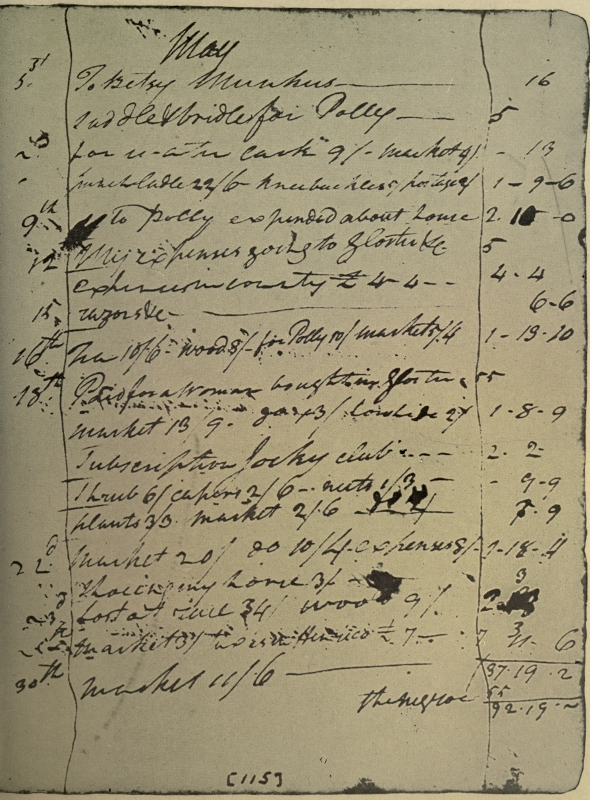 May
5. 31 To Betsy Munkus 16
saddle & bridle for Polly 5
for cask 9/- market 4/ - 13
punch Ladle 22/6 knee buckles 5/ 1 - 9 - 6
9th To Polly expended about house 2. 10 - 0
12 My expenses going to Gloster &c 5
expences in county £ 4 - 4 - - 4 - 4
15. razors &c - 6 - 6
16th Tea 10/6 - wood 8/- for Polly 10/ market 5/4 1 - 13 - 10
18th Paid for a Woman bought in Gloster 55
market 13 9 - 3/ 2/ 1 - 8 - 9
Subscription Jocky club - - - 2 - 2
Shrub 6/ capers 2/6 - nuts 1/3 - - 9 - 9
plants 3/3. market 2/6 7. 9
22d market 20/ do 10/4. expenses 8/- 1 - 18 - 4
Shoeing my horse 3/- 3
23d Lost at 34/ wood 9/ 2
market 3/ Henrico £ 7 - 7 6
30th market 11/6 37 - 19 - 2
the negroe 55
92 - 19 - ~
[115]